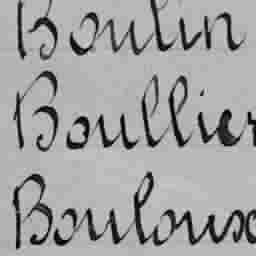 Boulin
Boullier
Bouloux